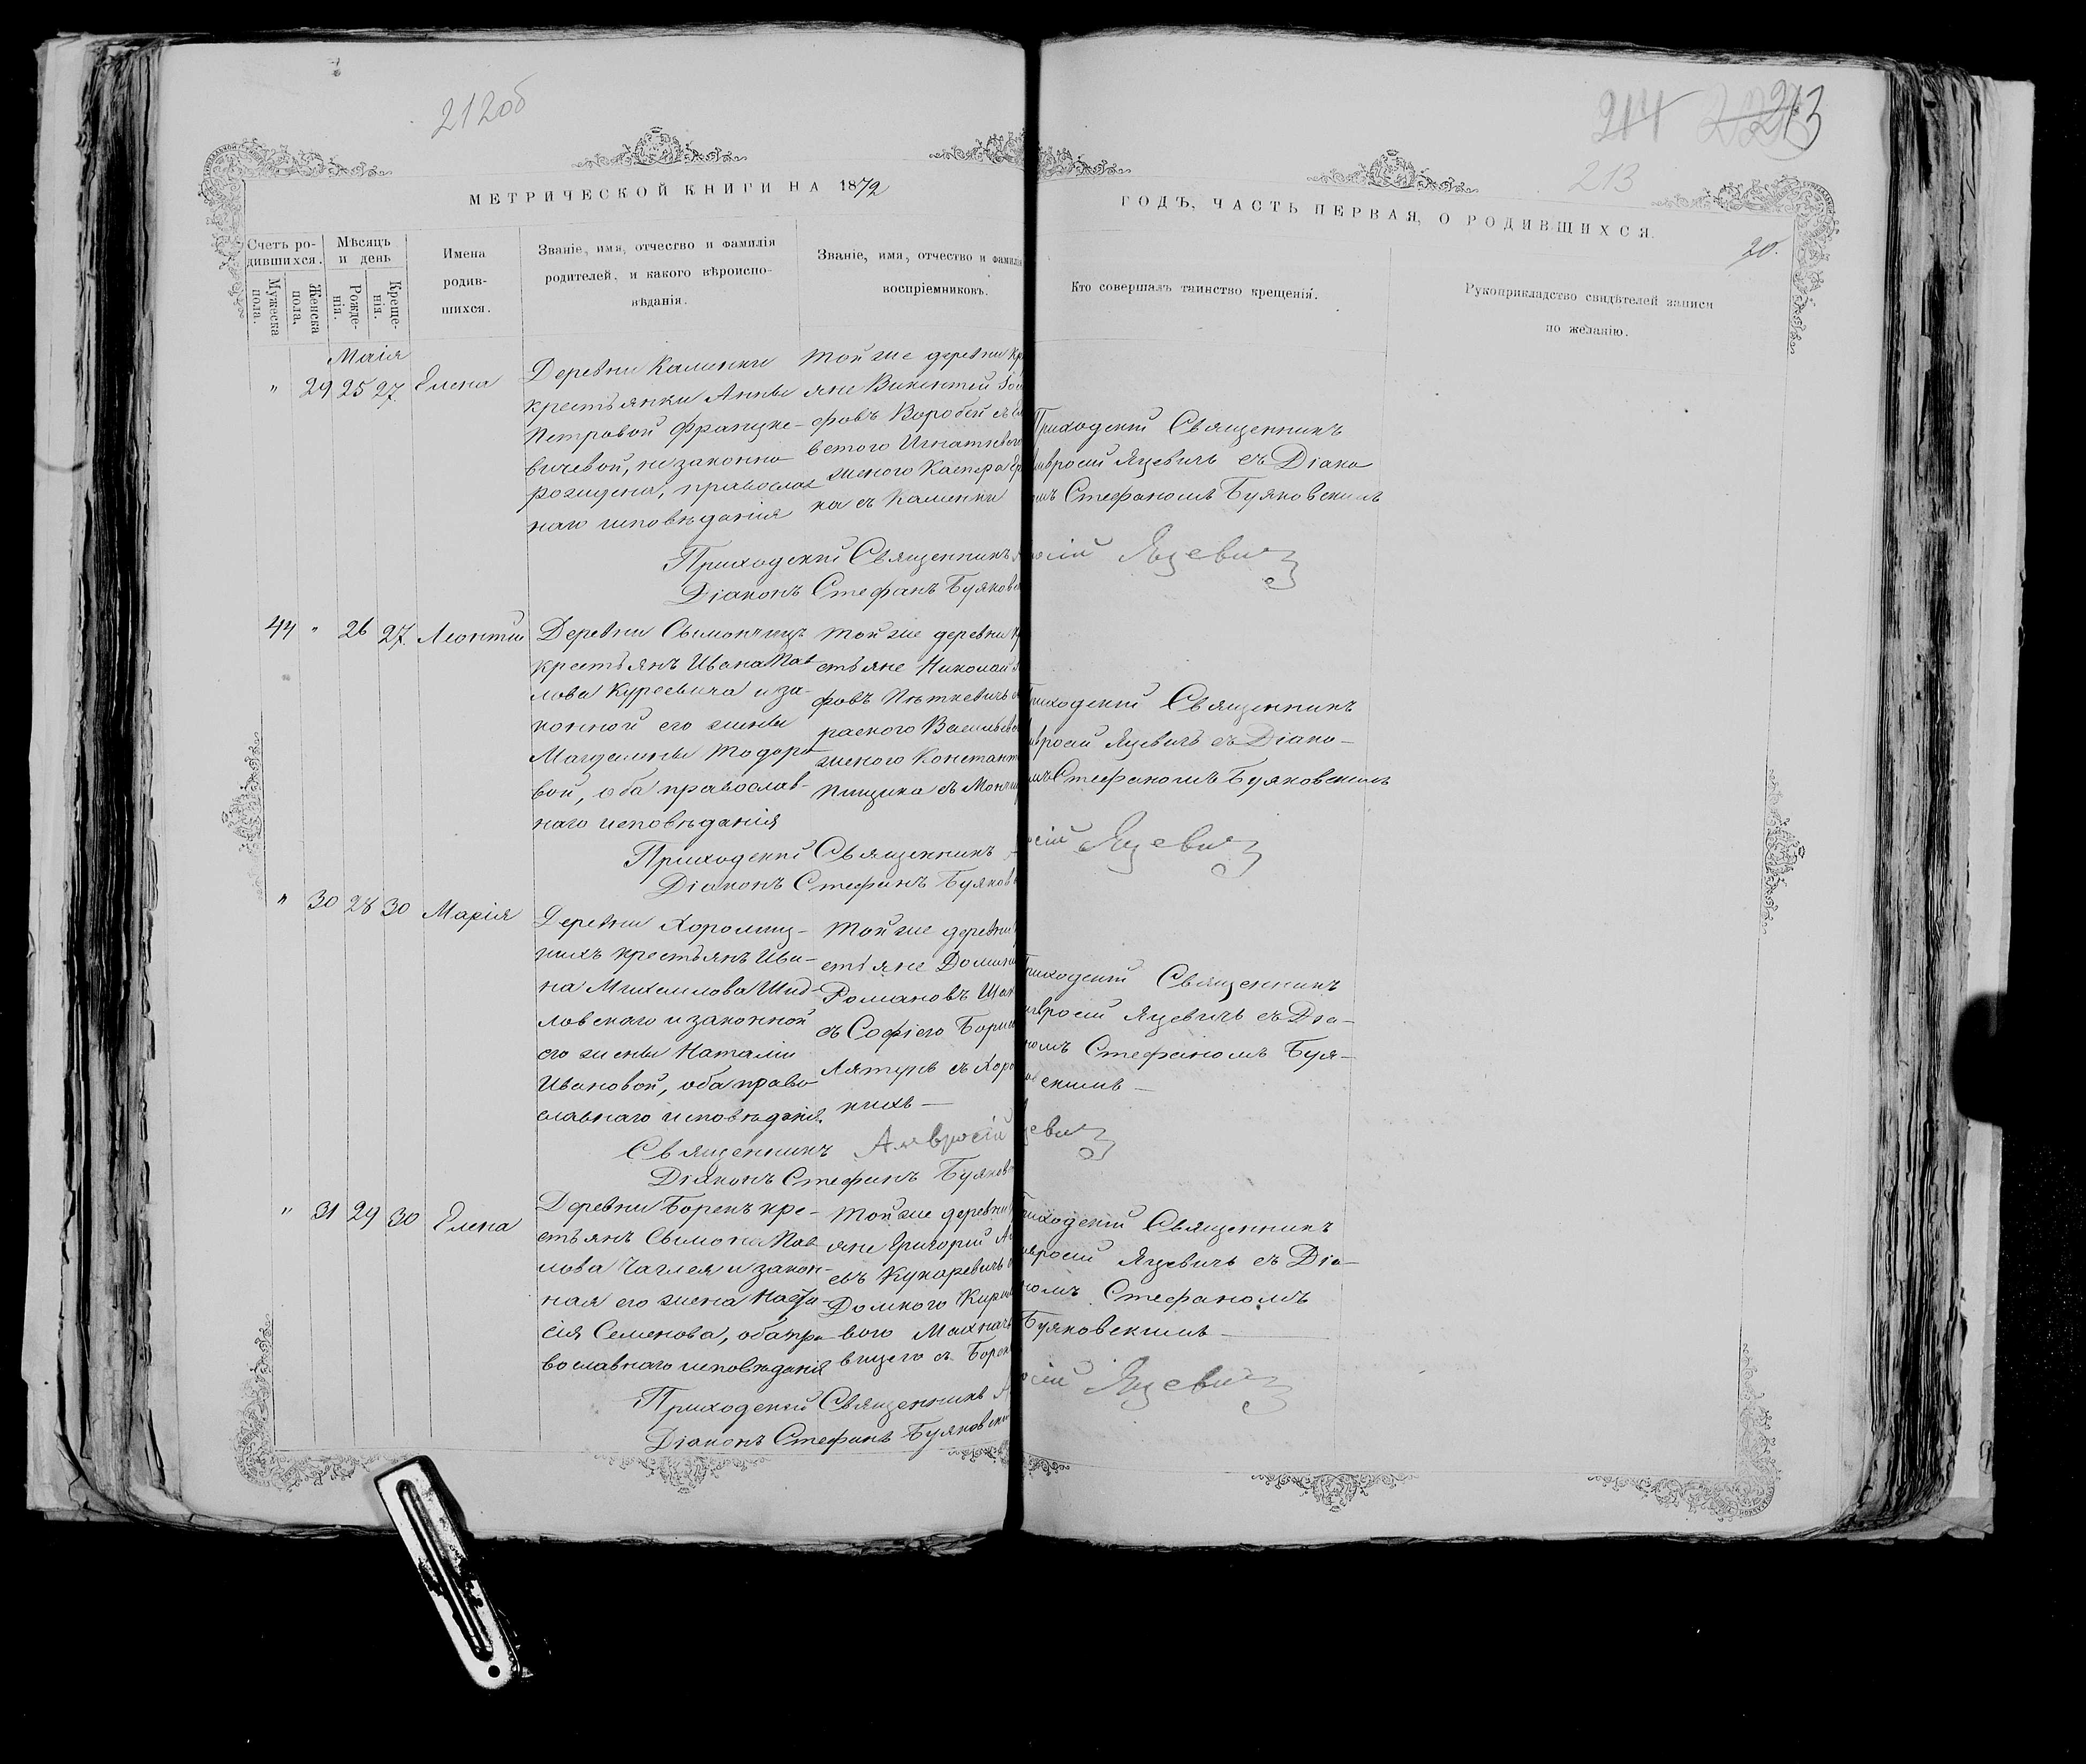 212об
214 213
213
МЕТРИЧЕСКОЙ КНИГИ НА 1872
ГОДЪ, ЧАСТЬ ПЕРВАЯ, О РОДИВШИХСЯ.
20.
Счетъ ро-
дившихся.
Мужеска
пола.
Женска
пола.
Мѣсяцъ
и день
Рожде-
нія.
Креще-
нія.
Имена
родив-
шихся.
Званіе, имя, отчество и фамилія
родителей, и какого вѣроиспо-
вѣданія.
Званіе, имя, отчество и фамилія
воспріемниковъ.
Кто совершалъ таинство крещенія.
Рукоприкладство свидѣтелей записи
по желанію.
Маія
" 29 25 27 Елена
Деревни Каменки
крестьянки Анны
Петровой Францке-
вичевой, незаконно
рождена, православ
наго исповѣданія
Той же деревни кр
яне Викентій
фовъ Воробей съ
ветою Игнатьевою
женою Каспера
ка съ Каменки
Приходскій Священникъ
Амвросій Яцевичъ съ Діако
омъ Стефаномъ Буяковскимъ
Приходскій Священникъ Амвросій Яцевичъ
Діаконъ Стефанъ Буяковск
44 " 26 27 Леонтій
Деревни
крестьянъ Ивана Пав
лова Куреевича и за-
конной его жены
Магдалины Тодоро
вой, оба православ-
наго исповѣданія
Той же деревни кр
стьяне Николай
фовъ Пѣткевичъ
раскою Васильево
женою Констант
Пищика съ
Приходскій Священникъ
Амвросій Яцевичъ съ Діако-
омъ Стефаномъ Буяковскимъ
Приходскій Священникъ Амвросій Яцевичъ
Діаконъ Стефанъ Буяков
" 30 28 30 Марія
Деревни Хоромиц-
кихъ крестьянъ Ива-
на Михаилова Шид-
ловскаго и законной
его жены Наталіи
Ивановой, оба право
славнаго исповѣданія.
Той же деревни
стьяне Домин
Романовъ Шах
съ Софіею Борис
Лятуръ съ Хоро
кихъ —
Приходскій Священникъ
Амвросій Яцевичъ съ Діа-
номъ Стефаномъ Буя-
ковскимъ —
Священникъ Амвросій Яцевичъ
Діаконъ Стефанъ Буяков
" 31 29 30 Елена
Деревни Борекъ кре-
стьянъ Сымона Пав
лова Чаглея и закон-
ная его жена Наста-
сія Семенова, оба пра
вославнаго исповѣданія
Той же деревни
яне Григорій
евъ Кухаревичъ
Домкою Кири
вою Махнач
вицею съ Борек
Приходскій Священникъ
Амвросій Яцевичъ съ Діа-
номъ Стефаномъ
Буяковскимъ —
Приходскій Священникъ Амвросій Яцевичъ
Діаконъ Стефанъ Буяковскій